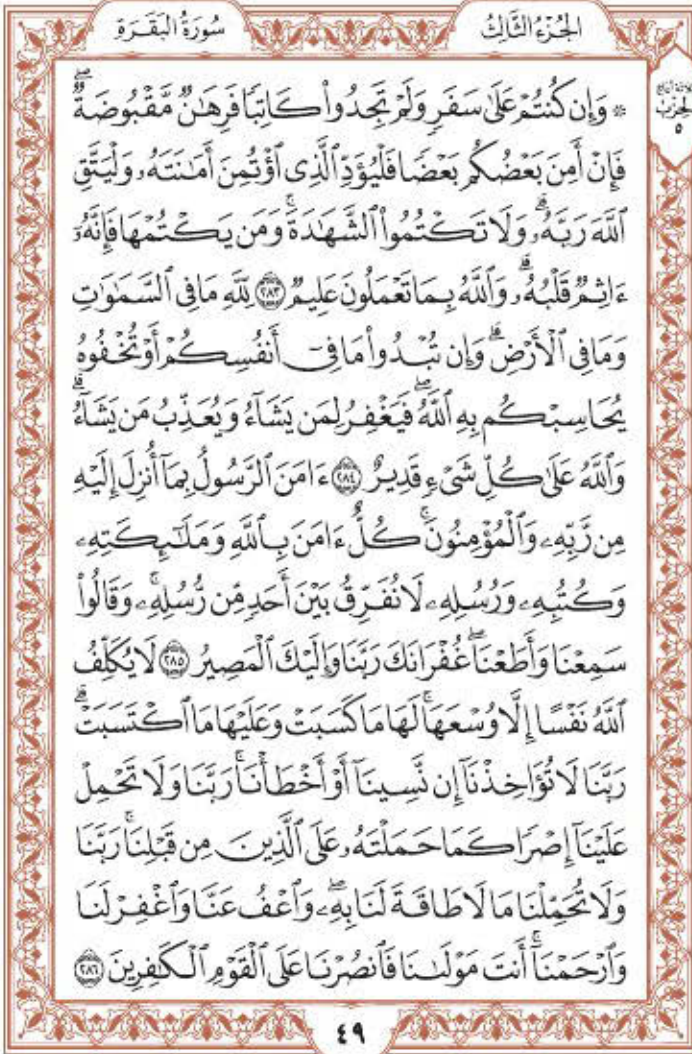 سُورَةُ البَقَرَةِ
الجُزْءُ الثَّالِثُ
۞ وَإِن كُنتُمْ عَلَىٰ سَفَرٍ وَلَمْ تَجِدُوا۟ كَاتِبًا فَرِهَٰنٌ مَّقْبُوضَةٌ ۖ
فَإِنْ أَمِنَ بَعْضُكُم بَعْضًا فَلْيُؤَدِّ ٱلَّذِى ٱؤْتُمِنَ أَمَٰنَتَهُۥ وَلْيَتَّقِ
ٱللَّهَ رَبَّهُۥ ۗ وَلَا تَكْتُمُوا۟ ٱلشَّهَٰدَةَ ۚ وَمَن يَكْتُمْهَا فَإِنَّهُۥٓ
ءَاثِمٌ قَلْبُهُۥ ۗ وَٱللَّهُ بِمَا تَعْمَلُونَ عَلِيمٌ ٢٨٣ لِّلَّهِ مَا فِى ٱلسَّمَٰوَٰتِ
وَمَا فِى ٱلْأَرْضِ ۗ وَإِن تُبْدُوا۟ مَا فِىٓ أَنفُسِكُمْ أَوْ تُخْفُوهُ
يُحَاسِبْكُم بِهِ ٱللَّهُ ۖ فَيَغْفِرُ لِمَن يَشَآءُ وَيُعَذِّبُ مَن يَشَآءُ ۗ
وَٱللَّهُ عَلَىٰ كُلِّ شَىْءٍ قَدِيرٌ ٢٨٤ ءَامَنَ ٱلرَّسُولُ بِمَآ أُنزِلَ إِلَيْهِ
مِن رَّبِّهِۦ وَٱلْمُؤْمِنُونَ ۚ كُلٌّ ءَامَنَ بِٱللَّهِ وَمَلَٰٓئِكَتِهِۦ
وَكُتُبِهِۦ وَرُسُلِهِۦ لَا نُفَرِّقُ بَيْنَ أَحَدٍ مِّن رُّسُلِهِۦ ۚ وَقَالُوا۟
سَمِعْنَا وَأَطَعْنَا ۖ غُفْرَانَكَ رَبَّنَا وَإِلَيْكَ ٱلْمَصِيرُ ٢٨٥ لَا يُكَلِّفُ
ٱللَّهُ نَفْسًا إِلَّا وُسْعَهَا ۚ لَهَا مَا كَسَبَتْ وَعَلَيْهَا مَا ٱكْتَسَبَتْ ۗ
رَبَّنَا لَا تُؤَاخِذْنَآ إِن نَّسِينَآ أَوْ أَخْطَأْنَا ۚ رَبَّنَا وَلَا تَحْمِلْ
عَلَيْنَآ إِصْرًا كَمَا حَمَلْتَهُۥ عَلَى ٱلَّذِينَ مِن قَبْلِنَا ۚ رَبَّنَا
وَلَا تُحَمِّلْنَا مَا لَا طَاقَةَ لَنَا بِهِۦ ۖ وَٱعْفُ عَنَّا وَٱغْفِرْ لَنَا
وَٱرْحَمْنَآ ۚ أَنتَ مَوْلَىٰنَا فَٱنصُرْنَا عَلَى ٱلْقَوْمِ ٱلْكَٰفِرِينَ ٢٨٦
الحزب
٥
٤٩